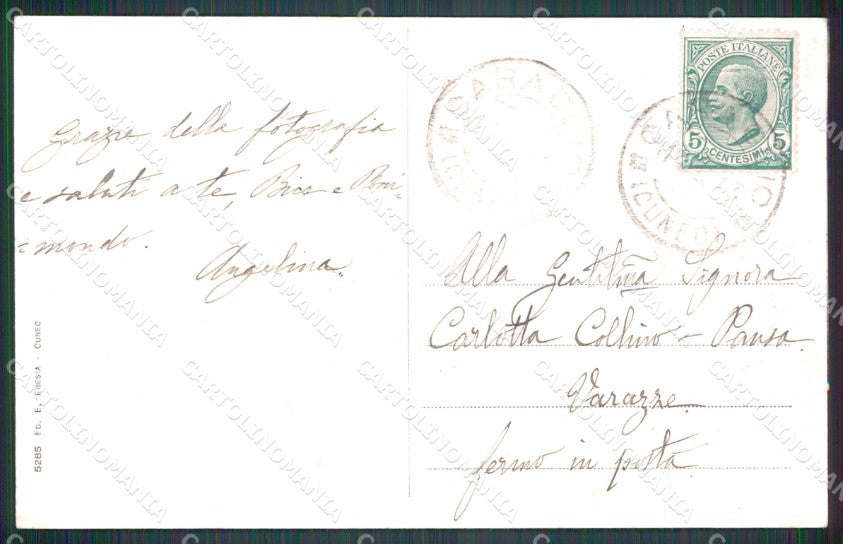 Grazie della fotografia
e saluti a te, Bice e Rai-
=mondo.
Angelina.
5285 ED. E. FRESIA - CUNEO
POSTE ITALIANE
5 5
CENTESIMI
(CUNEO)
Alla Gentilma Signora
Carlotta Collino - Pansa.
Varazze.
fermo in posta.
CARTOLINOMANIA